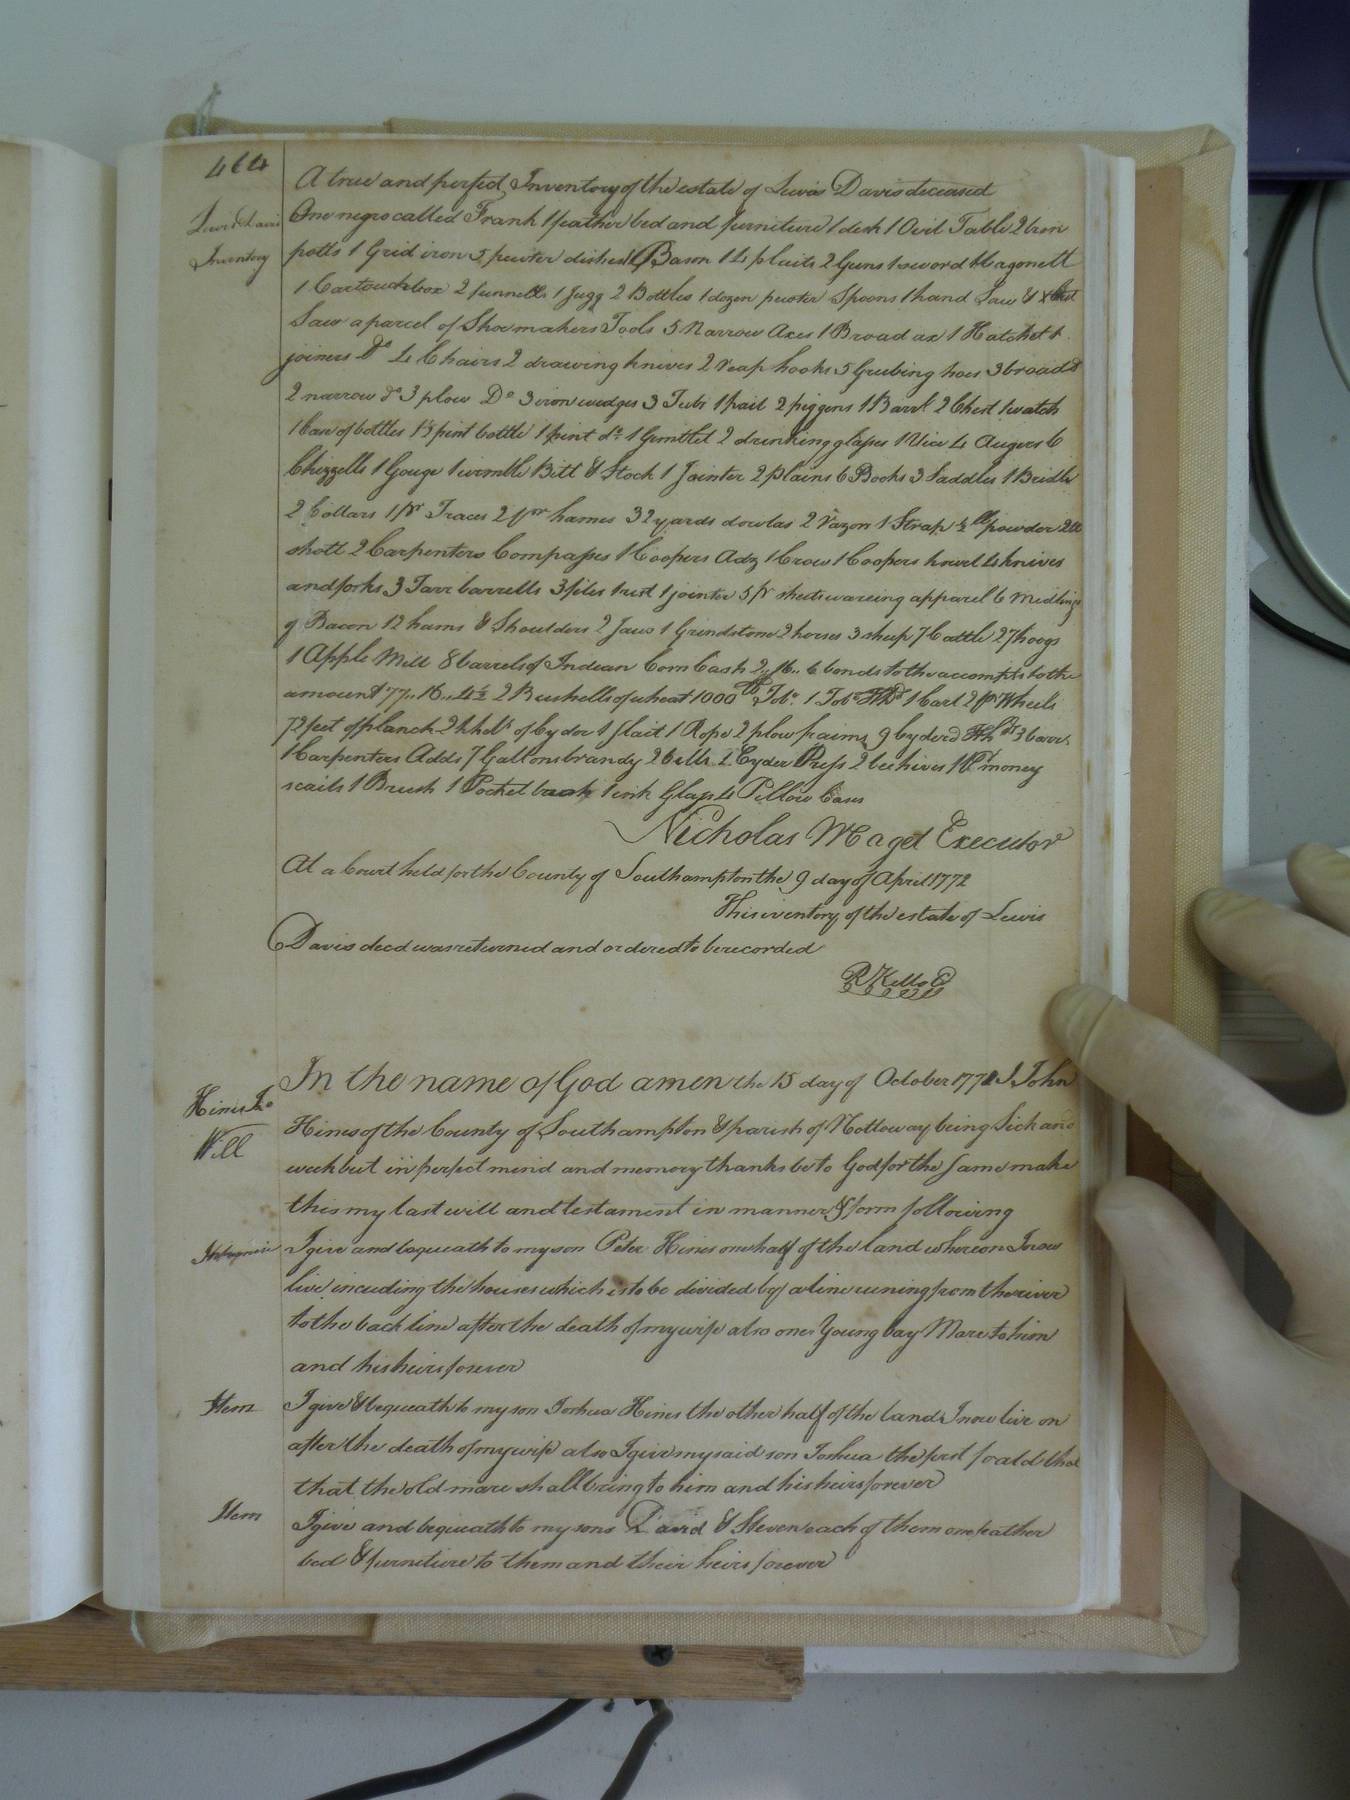 464
A true and perfect Inventory of the estate of Lewis Davis deceased
Lewis Davis
Inventory
One negro called Frank 1 feather bed and furniture 1 desk 1 Ovil Table 2 Iron
potts 1 Grid iron 5 pewter dishes 1 Bason 14 plaits 2 Guns 1 sword & bagonett
1 Cartouch box 2 funnells 1 Jugg 2 Bottles 1 dozen pewter Spoons 1 hand Saw & X Cut
Saw a parcel of Shoemakers Tools 5 Narrow Axes 1 Broad ax 1 Hatchet &
joiners Do 4 Chairs 2 drawing knives 2 reap hooks 5 Grubing hoes 3 broad do
2 narrow do 3 plow Do 3 iron wedges 3 Tubs 1 pail 2 piggens 1 Barrl 2 Chest 1 watch
1 Case of bottles 1 3 pint bottle 1 pint do 1 Gimblet 2 drinking glasses 1 Vice 4 Augers 6
Chizzells 1 Gouge 1 wimble Bitt & Stock 1 Jointer 2 plains 6 Books 3 Saddles 1 Bridle
2 Collars 1 pr Traces 2 pr hames 32 yards dowlas 2 razon 1 Strap ½ lb powder 2 lb
shott 2 Carpenters Compasses 1 Coopers Adz 1 Crow 1 Coopers howel 4 knives
and forks 3 Tarr barrells 3 files 1 rest 1 jointer 5 pr sheets wareing apparel 6 Midlings
of Bacon 12 hams & Shoulders 2 Jaws 1 Grindstone 2 horses 3 sheep 7 Cattle 27 hoggs
1 Apple Mill 8 barrels of Indian Corn Cash 2,,16,, 6 bonds to the accompts to the
amount 77,,16,,4½ 2 Bushells of wheat 1000 lb Tobo 1 Tobo Hhd 1 Cart 2 pr Wheels
72 feet of planck 2 hhds of Cyder 1 flait 1 Rope 2 plow fraims 9 Cyder Hhds 3 barrs
1 Carpenters Adds 7 Gallons brandy 2 bells 1 Cyder Press 2 bee hives 1 Pr money
scails 1 Brush 1 Pocket book 1 ink Glass 4 Pillow Cases
Nicholas Maget Executor
At a Court held for the County of Southampton the 9 day of April 1772
This inventory of the estate of Lewis
Davis decd was returned and ordered to be recorded
R Kello C
In the name of God amen the 15 day of October 1771 I John
Hines Jno
Will
Hines of the County of Southampton & parish of Nottoway being Sick and
week but in perfect mind and memory thanks be to God for the same make
this my last will and testament in manner & form following
I give and bequeath to my son Peter Hines one half of the land whereon I now
live incuding the houses which is to be divided by a line runing from the river
to the back line after the death of my wife also one Young bay Mare to him
and his heirs forever
Item I give & bequeath to my son Joshua Hines the other half of the land I now live on
after the death of my wife also I give my said son Joshua the first foald that
that the old mare shall bring to him and his heirs forever
Item I give and bequeath to my sons David & Steven each of them one feather
bed & furniture to them and their heirs forever